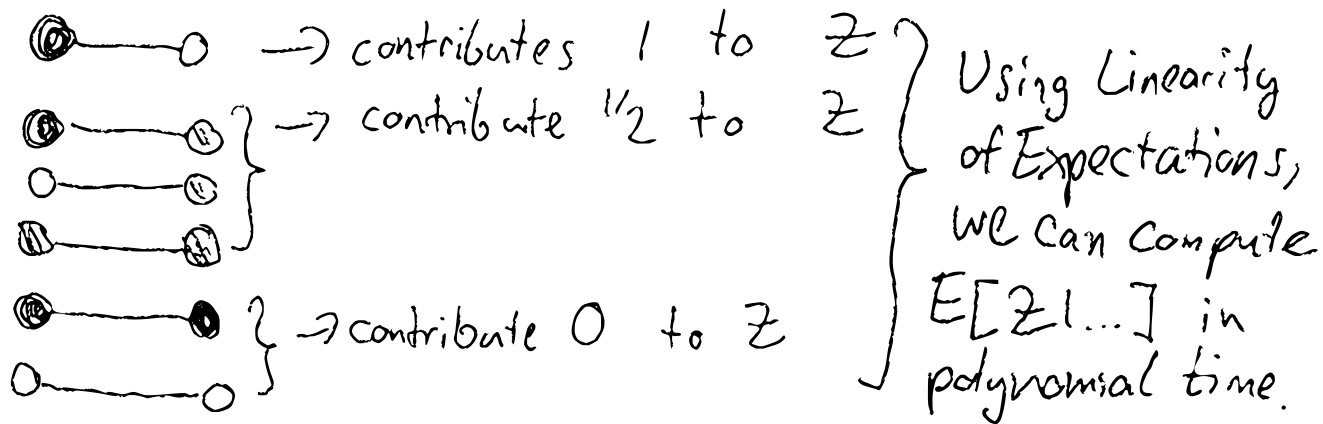 → contributes 1 to Z
→ contribute 1/2 to Z
→ contribute 0 to Z
Using Linearity
of Expectations,
we can compute
E[Z|...] in
polynomial time.